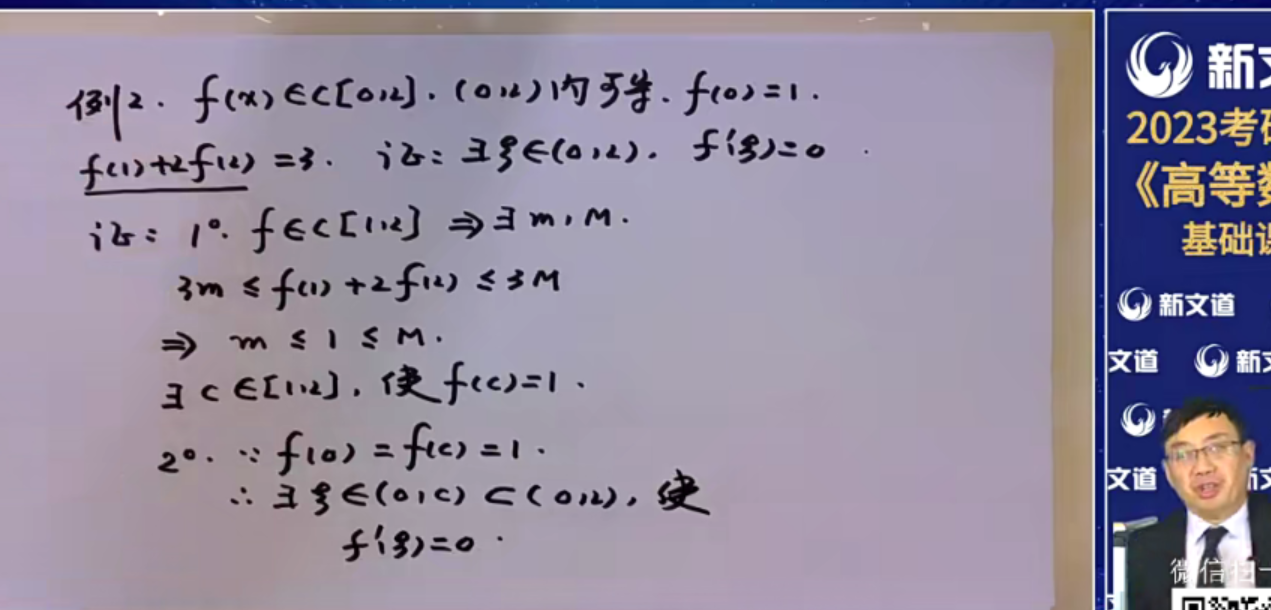 例2. f(x)∈C[0,2]. (0,2)内可导. f(0)=1.
f(1)+2f(2)=3. 证: ∃ξ∈(0,2). f'(ξ)=0.
证: 1°. f∈C[1,2] ⇒ ∃m,M.
3m ≤ f(1)+2f(2) ≤ 3M
⇒ m ≤ 1 ≤ M.
∃c∈[1,2], 使f(c)=1.
2°. ∵ f(0)=f(c)=1.
∴ ∃ξ∈(0,c)⊂(0,2), 使
f'(ξ)=0.
新文
2023考研
《高等数
基础课
新文道
文道 新文
文道
微信扫一